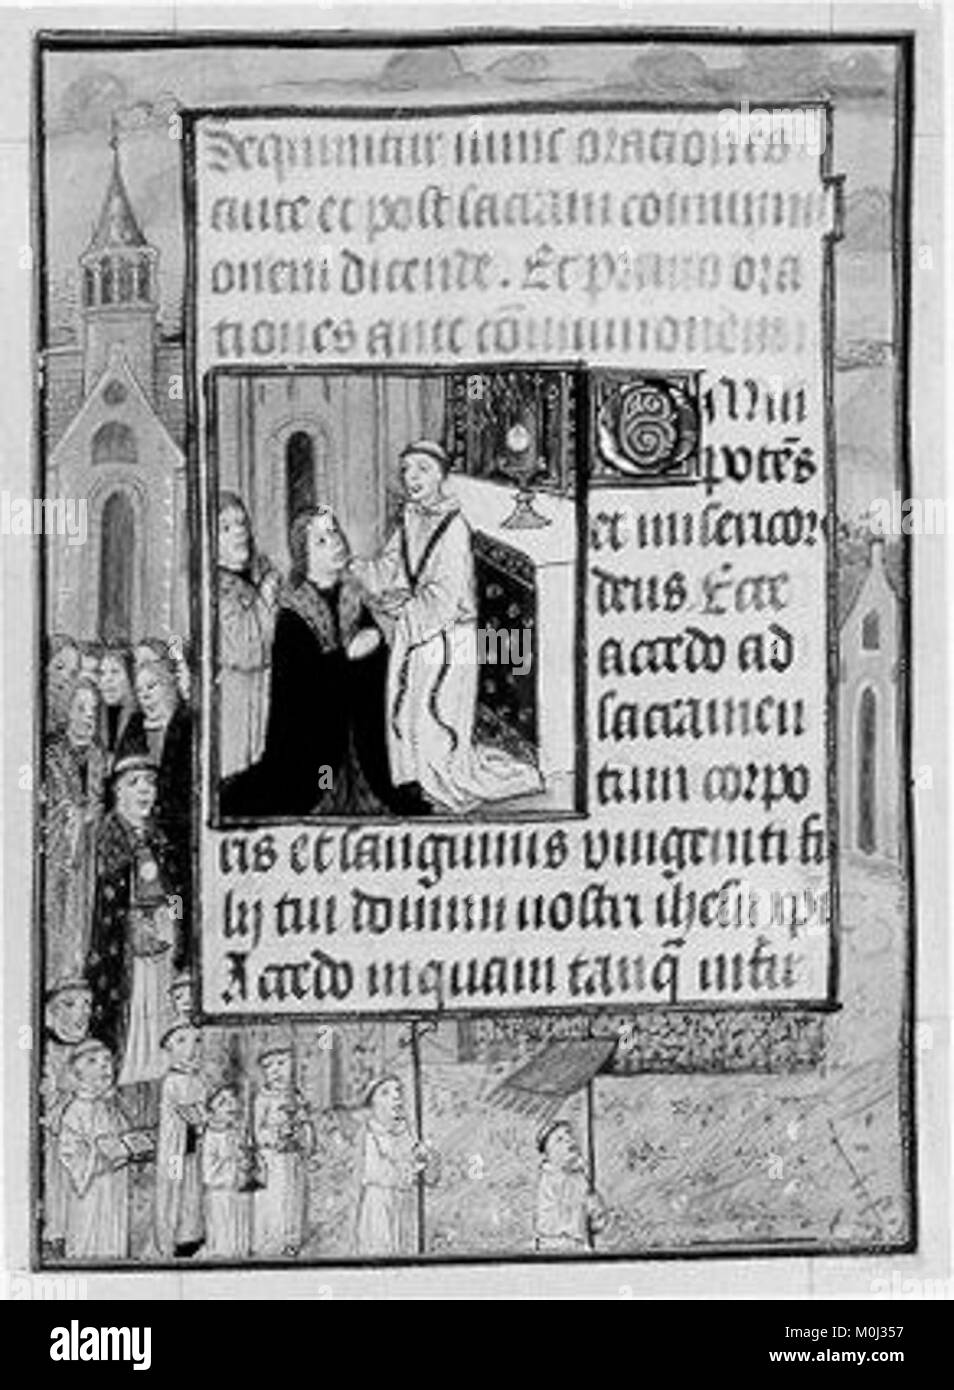 Sequuntur nunc orationes
ante et post sacram communi
onem dicende. Et primo ora
tiones ante cōmunionem
Omni
potēs
et misericor
deus. Ecce
accedo ad
sacramen
tum corpo
ris et sanguinis unigeniti fi
lij tui domini nostri ihesu xpi
Accedo inquam tanq̄ infir
alamy
Image ID: M0J357
www.alamy.com